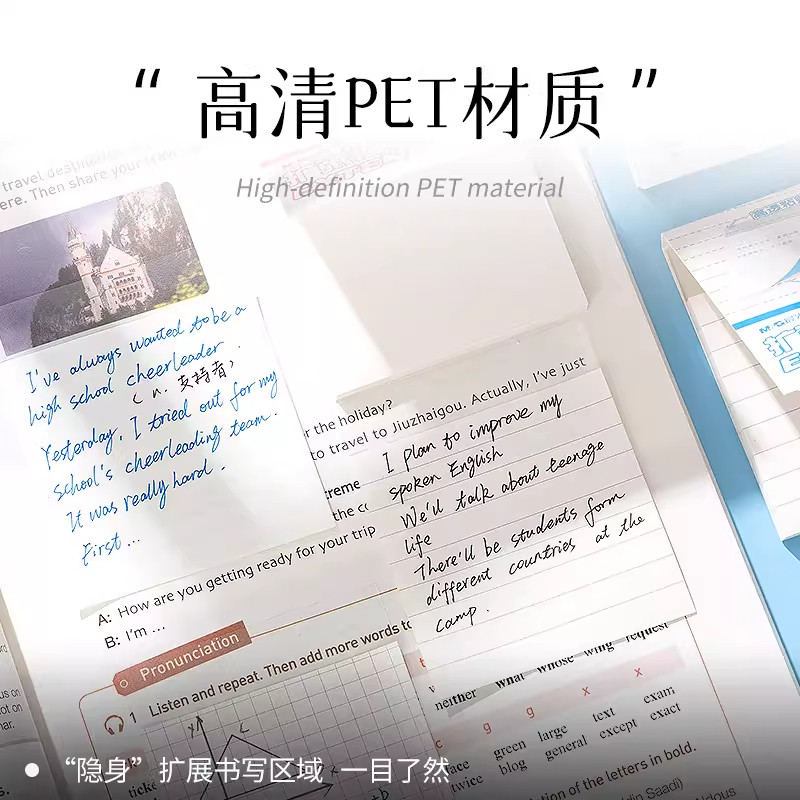 “ 高清PET材质 ”
High-definition PET material
travel destination
ere. Then share your
I've always wanted to be a
high school cheerleader.
( n. 支持者)
Yesterday, I tried out for my
school's cheerleading team.
It was really hard.
First ...
r the holiday?
to travel to Jiuzhaigou. Actually, I've just
I plan to improve my
spoken English
We'll talk about teenage
life
There'll be students form
different countries at the
camp.
treme
the co
you getting ready for your trip
A: How are
B: I'm ...
Pronunciation
1 Listen and repeat. Then add more words to
neither what whose wing request
c g g x x
ace green large text exam
twice blog general except exact
tion of the letters in bold.
din Saadi)
“隐身”扩展书写区域 一目了然